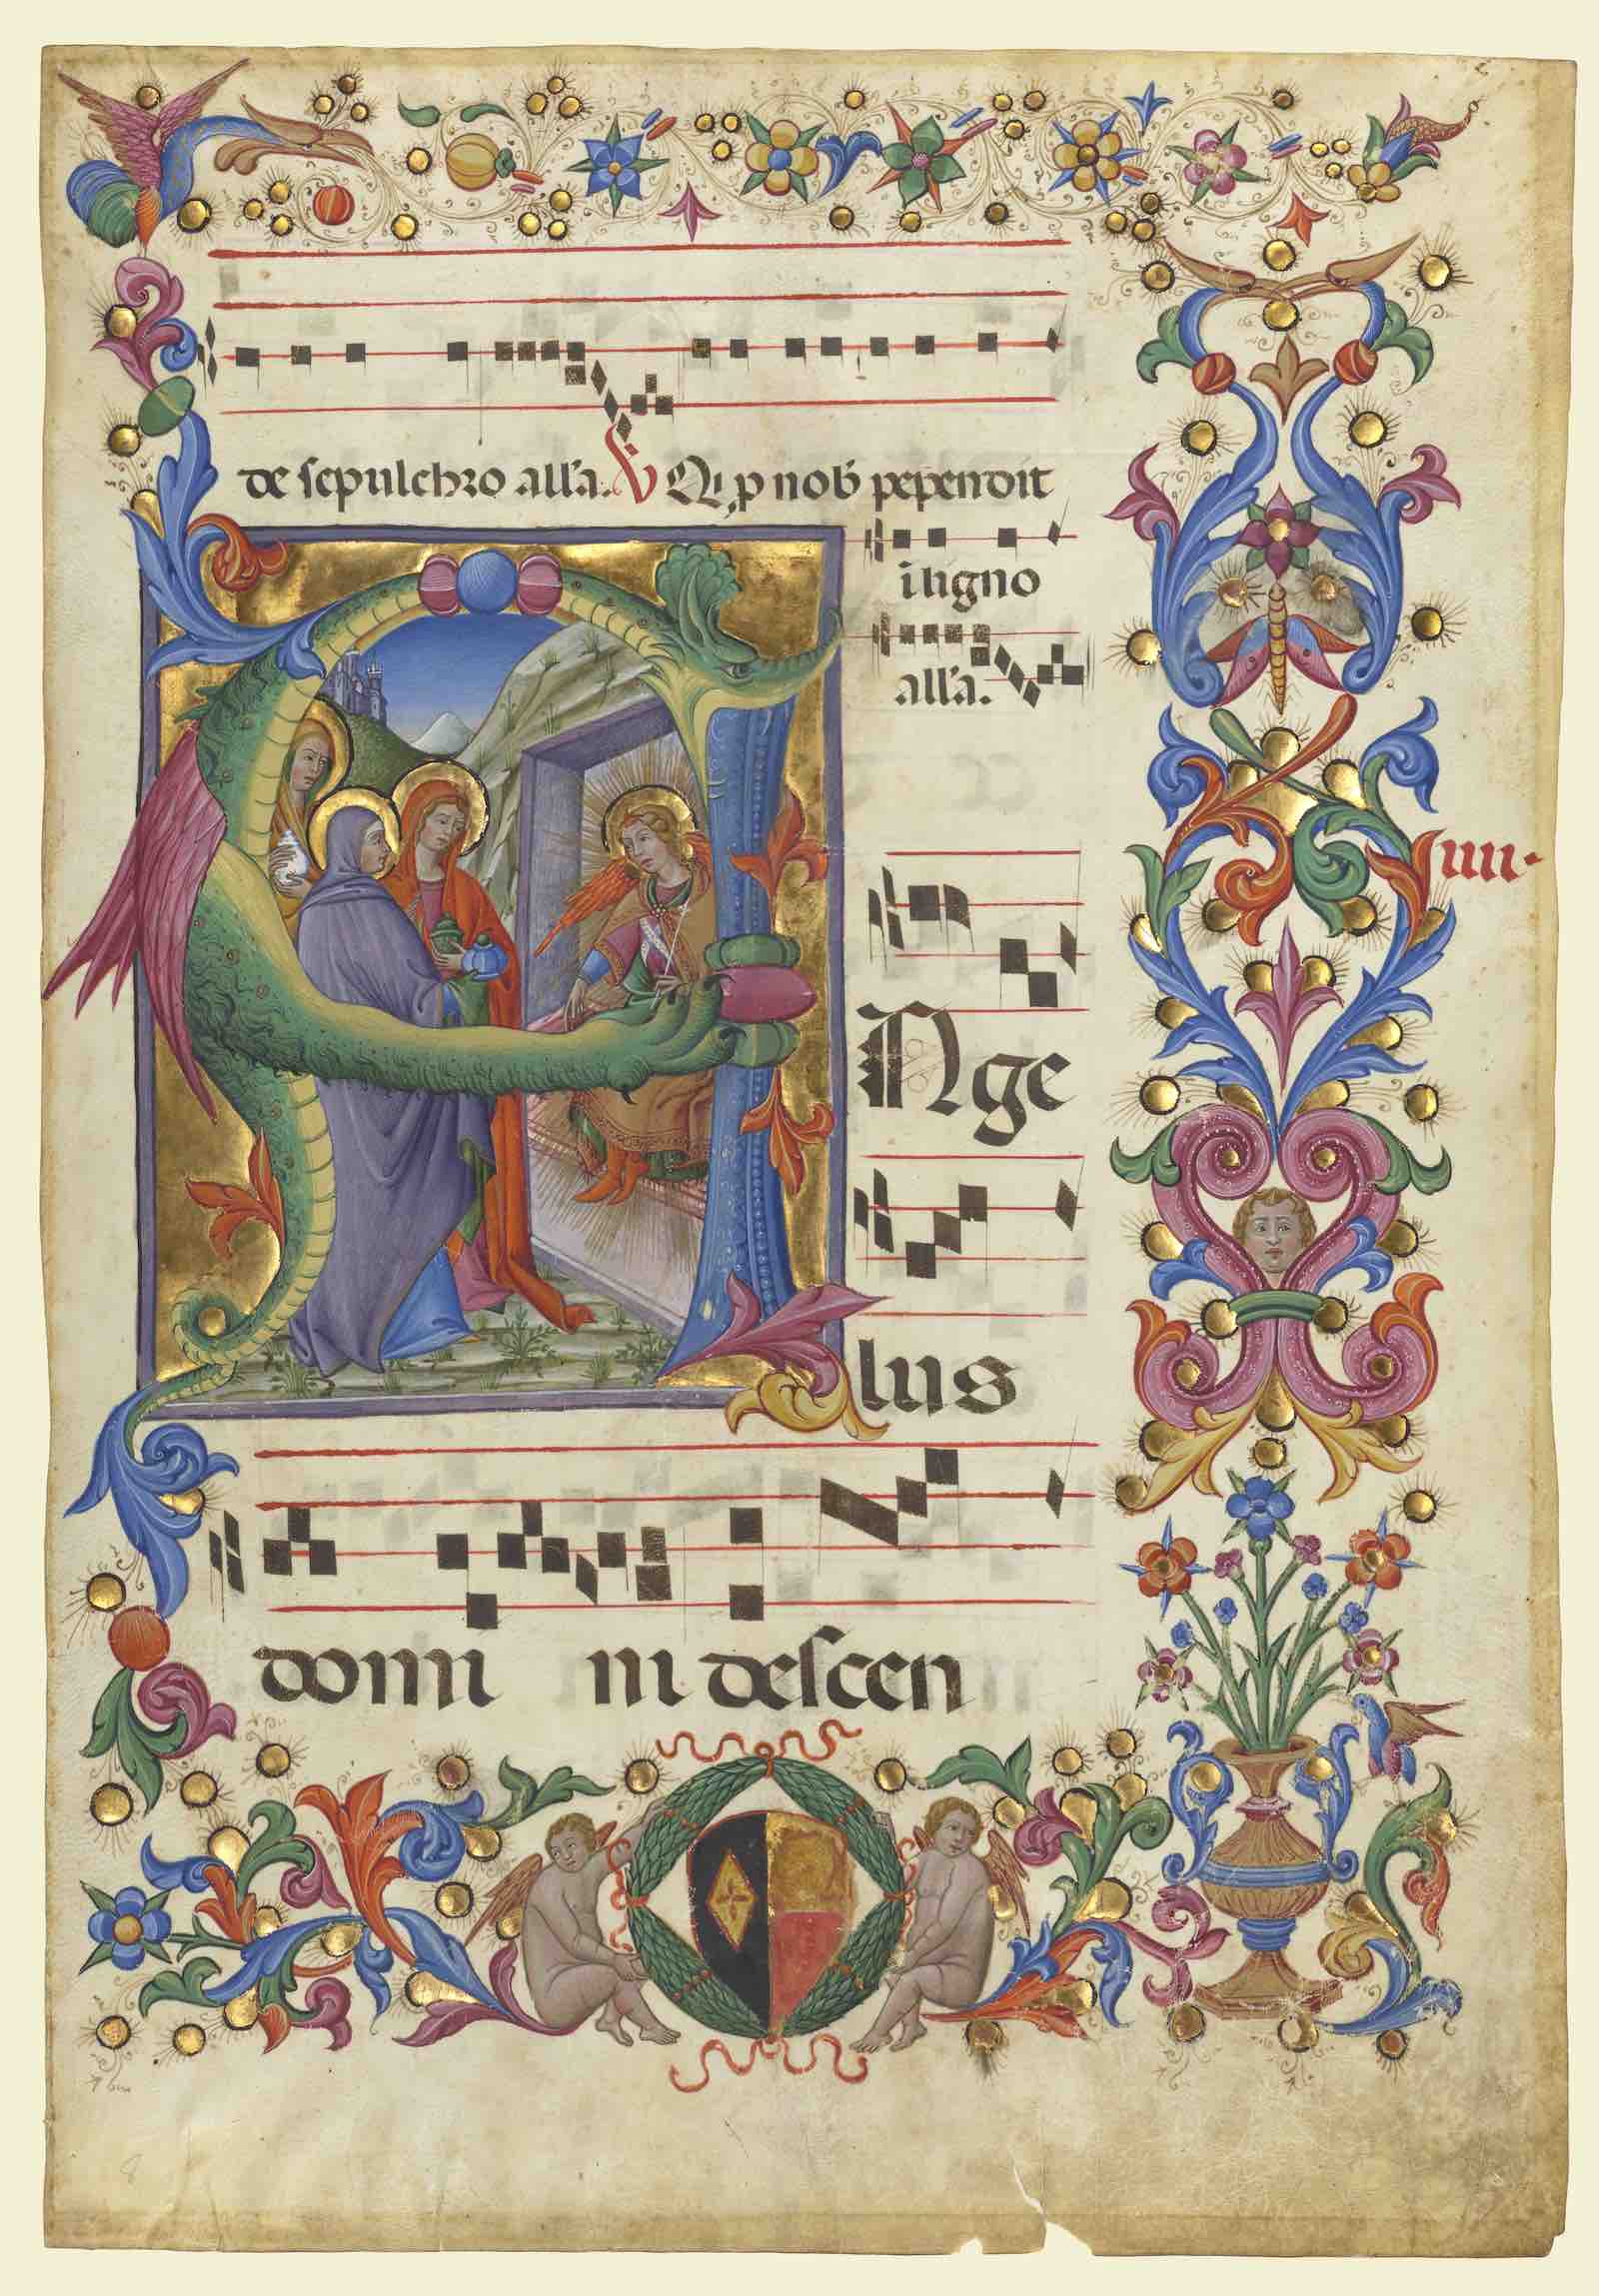 de sepulchro all'a. V Qi p nob pependit
i ligno
all'a.
Nge
iiii.
lus
domi ni descen